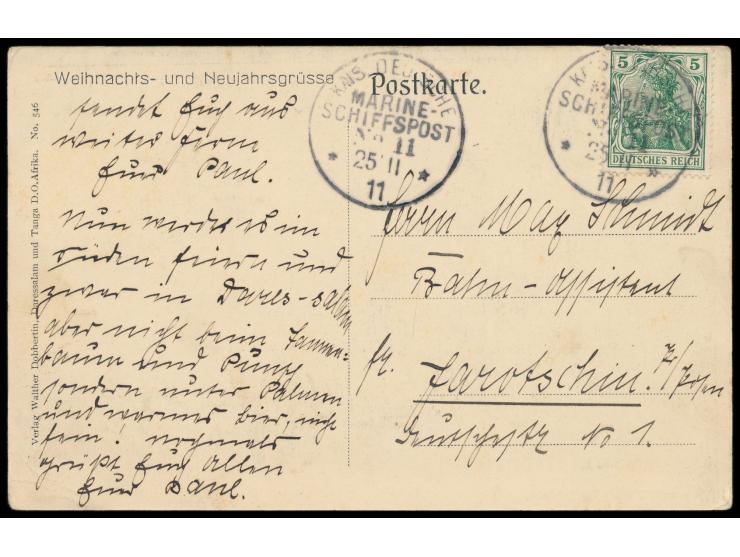 Weihnachts- und Neujahrsgrüsse
sendet Euch aus
weiter Ferne
Euer Paul.
Nun werdet es im
Süden feiern und
zwar in Dares-salam
aber nicht beim Tannen-
baum und Punsch
sondern unter Palmen
und warmes Bier, nicht
fein! nochmals
grüßt Euch Allen
Euer Paul.
Verlag Walther Dobbertin, Daressalam und Tanga D.O.Afrika. No. 546
Postkarte.
KAIS. DEUTSCHE
MARINE-
SCHIFFSPOST
No 11
25 11
11
KAIS. DEUTSCHE
MARINE-
SCHIFFSPOST
No 11
25 11
11
5 5
DEUTSCHES REICH
Herrn Max Schmidt
Bahn-Assistent
Jarotschin. Posen
No 1.